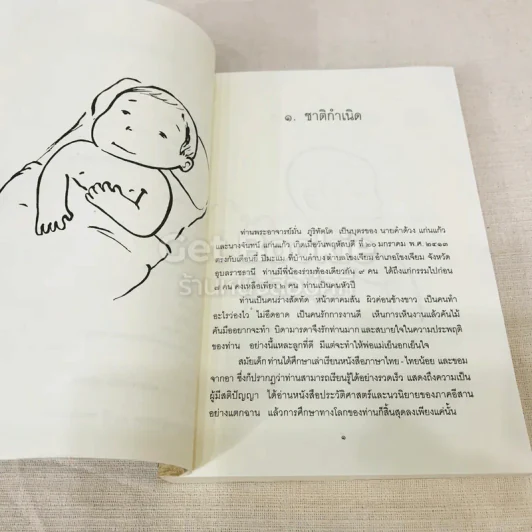 ๑. ชาติกำเนิด
ท่านพระอาจารย์มั่น ภูริทัตโต เป็นบุตรของ นายคำด้วง แก่นแก้ว
และนางจันทน์ แก่นแก้ว เกิดเมื่อวันพฤหัสบดี ที่ ๒๐ มกราคม พ.ศ. ๒๔๑๓
ตรงกับเดือนยี่ ปีมะแม ที่บ้านคำบง ตำบลโขงเจียม อำเภอโขงเจียม จังหวัด
อุบลราชธานี ท่านมีพี่น้องร่วมท้องเดียวกัน ๙ คน ได้ถึงแก่กรรมไปก่อน
๗ คน คงเหลือเพียง ๒ คน ท่านเป็นคนหัวปี
ท่านเป็นคนร่างสัดทัด หน้าตาคมสัน ผิวค่อนข้างขาว เป็นคนทำ
อะไรว่องไว ไม่อืดอาด เป็นคนรักการงานดี เห็นการเห็นงานแล้วคันไม้
คันมืออยากจะทำ บิดามารดาจึงรักท่านมาก และสบายใจในความประพฤติ
ของท่าน อย่างนี้แหละลูกที่ดี มีแต่จะทำให้พ่อแม่เย็นอกเย็นใจ
สมัยเด็ก ท่านได้ศึกษาเล่าเรียนหนังสือภาษาไทย - ไทยน้อย และขอม
จากอา ซึ่งก็ปรากฏว่าท่านสามารถเรียนรู้ได้อย่างรวดเร็ว แสดงถึงความเป็น
ผู้มีสติปัญญา ได้อ่านหนังสือประวัติศาสตร์และนวนิยายของภาคอีสาน
อย่างแตกฉาน แล้วการศึกษาทางโลกของท่านก็สิ้นสุดลงเพียงแค่นั้น
๑